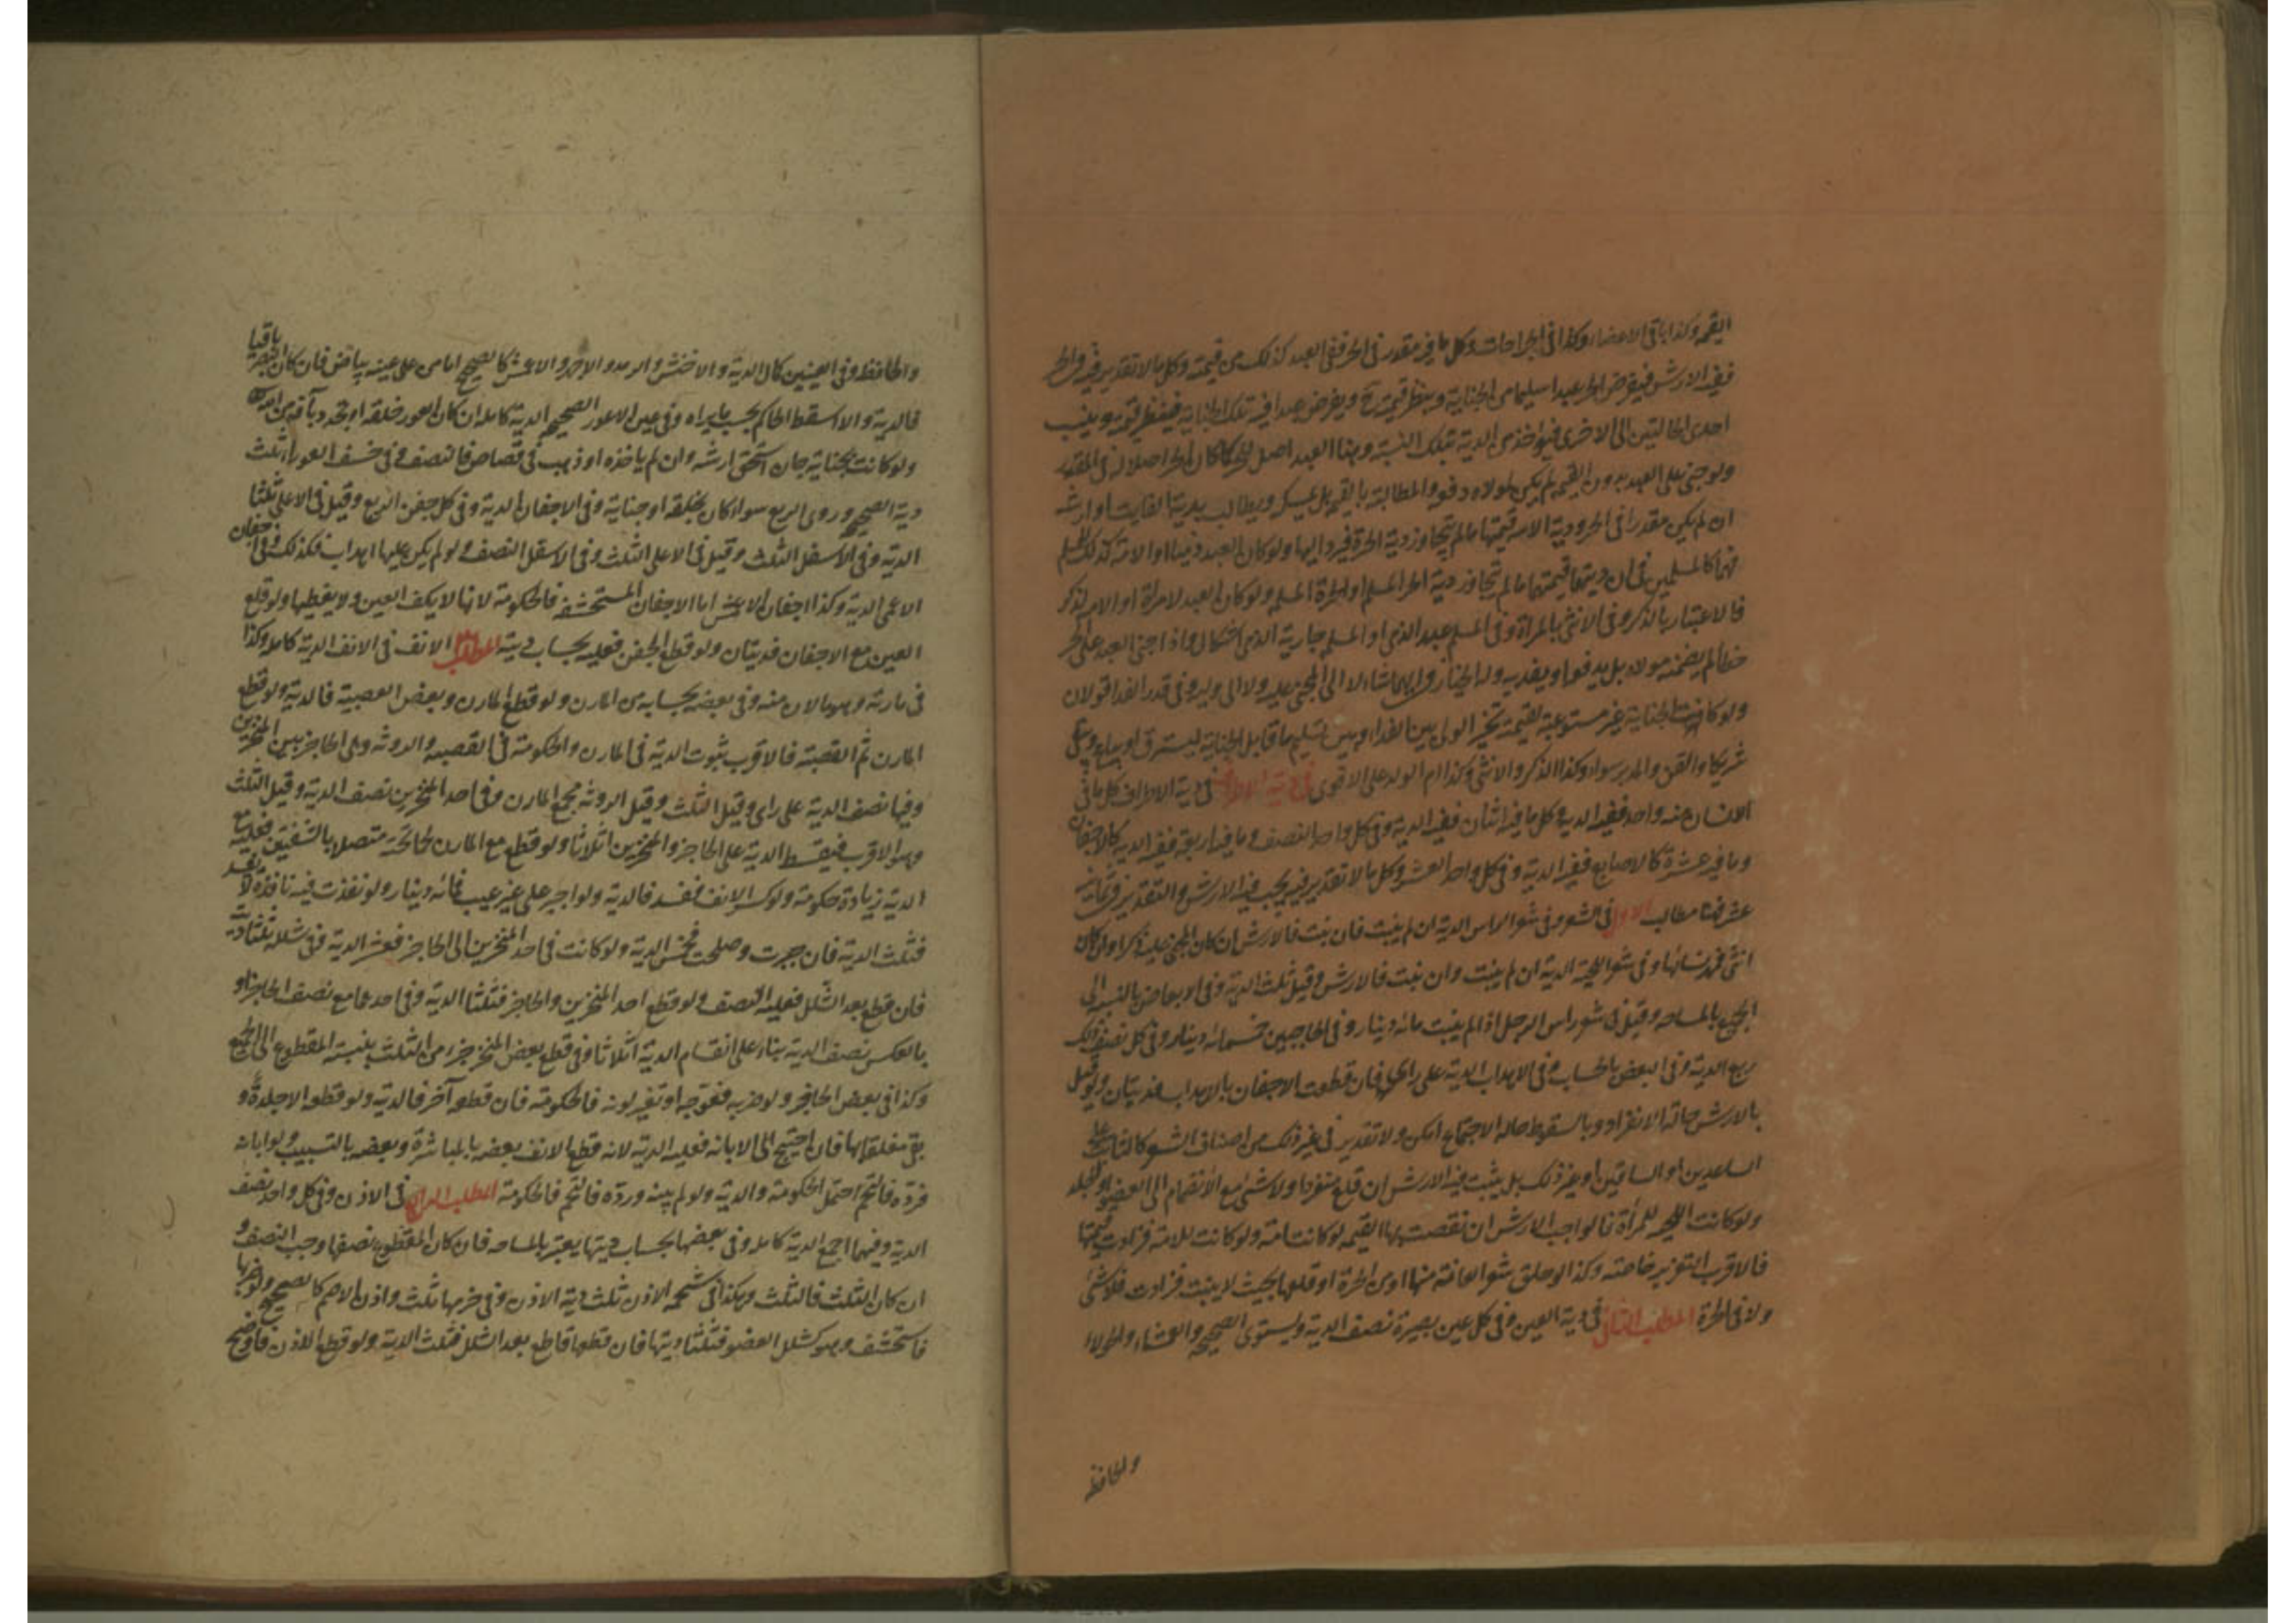 القيمة وكذا باقي الاعضاء وكذا في الجراحات وكل ما فيه مقدر في الحر ففي العبد كذلك من قيمته وكل ما لا تقدير فيه في الحر
ففيه الارش فيفرض الحر عبدا سليما من الجناية وينظر قيمته ح ويفرض عبدا فيه تلك الجناية فينظر قيمته وينسب
احدى الحالتين الى الاخرى فيؤخذ من الدية بتلك النسبة وهنا العبد اصل للحر كما كان الحر اصلا له في المقدر
ولو جنى على العبد بدون القيمة لم يكن لمولاه دفعه والمطالبة بالقيمة بل يمسكه ويطالب بدية الفايت او ارشه
ان لم يكن مقدرا في الحر ودية الامة قيمتها ما لم يتجاوز دية الحرة فيرد اليها ولو كان العبد ذميا او الامة كذلك
فهما كالمسلمين في ان ديتهما قيمتهما ما لم تتجاوز دية الحر المسلم او الحرة المسلمة ولو كان العبد لامراة او الامة لذكر
فالاعتبار بالذكر وفي الانثى بالمراة وفي المسلم عبد الذمي او المسلم جارية الذمي اشكال واذا جنى العبد على الحر
خطا لم يضمنه مولاه بل يدفعه او يفديه وله الخيار في ايهما شاء لا الى المجني عليه ولا الى وليه وفي قدر الفداء قولان
ولو كانت الجناية غير مستوعبة لقيمته تخير المولى بين الفداء وبين تسليم ما قابل الجناية ليسترق او يباع ويبقى
شريكا والقن والمدبر سواء وكذا الذكر والانثى وكذا ام الولد على الاقوى في دية الاطراف كل ما في
الانسان منه واحد ففيه الدية وكل ما فيه اثنان ففيه الدية وفي كل واحد النصف وما فيه اربعة ففيه الدية كالاجفان
وما فيه عشرة كالاصابع ففيه الدية وفي كل واحد العشر وكل ما لا تقدير فيه يجب فيه الارش والتقدير في ثمانية
عشر فهنا مطالب الاول في الشعر وفي شعر الراس الدية ان لم ينبت فان نبت فالارش ان كان المجني عليه ذكرا وان كان
انثى فمهر نسائها وفي شعر اللحية الدية ان لم ينبت وان نبت فالارش وقيل ثلث الدية وفي الابعاض بالنسبة الى
الجميع بالمساحة وقيل في شعر راس الرجل اذا لم ينبت مائة دينار وفي الحاجبين خمسمائة دينار وفي كل نصف ذلك
ربع الدية وفي البعض بالحساب وفي الاهداب الدية على راي فان قطعت الاجفان بالاهداب فديتان ولو قيل
بالارش حالة الانفراد وبالسقوط حالة الاجتماع امكن ولا تقدير في غير ذلك من اصناف الشعر كالنابت على
الساعدين او الساقين او غير ذلك بل يثبت فيه الارش ان قلع منفردا ولا شئ مع الانضمام الى العضو او الجلد
ولو كانت اللحية للمرأة فالواجب الارش ان نقصت بها القيمة لو كانت امة ولو كانت للامة فزادت قيمتها
فالاقرب التعزير خاصة وكذا لو حلق شعر العانة منها او من الحرة او قلعها بحيث لا ينبت فزادت فلا شئ
ولا في الحرة المطلب الثاني في دية العين وفي كل عين بصيرة نصف الدية ويستوى الصحيحة والعمشاء والحولاء
والجاحظة
والجاحظة وفي العينين كمال الدية والاخفش والارمد والاجهر والاعمش كالصحيح اما من على عينه بياض فان كان البصر باقيا
فالدية والا اسقط الحاكم بحسب ما يراه وفي عين الاعور الصحيحة الدية كاملة ان كان العور خلقة او تجدد بآفة من الله
ولو كانت بجناية جان استحق ارشه وان لم ياخذه او ذهبت في قصاص فالنصف وفي خسف العوراء ثلث
دية الصحيحة وروى الربع سواء كان بخلقة او جناية وفي الاجفان الدية وفي كل جفن الربع وقيل في الاعلى ثلثا
الدية وفي الاسفل الثلث وقيل في الاعلى الثلث وفي الاسفل النصف ولو لم يكن عليها اهداب فكذلك وفي اجفان
الاعمى الدية وكذا اجفان الاعمش اما الاجفان المستحشفة فالحكومة لانها لا يكف العين ولا يغطيها ولو قلع
العين مع الاجفان فديتان ولو قطع الجفن فعليه بحساب ديته المطلب الانف في الانف الدية كاملة وكذا
في مارنه وهو ما لان منه وفي بعضه بحسابه من المارن ولو قطع المارن وبعض القصبة فالدية ولو قطع
المارن ثم القصبة فالاقرب ثبوت الدية في المارن والحكومة في القصبة والروثة وهي الحاجز بين المنخرين
وفيها نصف الدية على راى وقيل الثلث وقيل الروثة مجمع المارن وفي احد المنخرين نصف الدية وقيل الثلث
وهو الاقرب فيقسط الدية على الحاجز والمنخرين اثلاثا ولو قطع مع المارن لحما تحته متصلا بالشفتين فعليه مع
الدية زيادة حكومة ولو كسر الانف ففسد فالدية ولو اجبر على غير عيب فمائة دينار ولو نفذت فيه نافذة لا تنسد
فثلث الدية فان جبرت وصلحت فخمس الدية ولو كانت في احد المنخرين الى الحاجز فعشر الدية وفي شلله ثلثا ديته
فان قطع بعد الشلل فعليه الثلث ولو قطع احد المنخرين والحاجز فثلثا الدية وفي احدهما مع نصف الحاجز او
بالعكس نصف الدية بناء على انقسام الدية اثلاثا وفي قطع بعض المنخر جزء من الثلث بنسبة المقطوع الى الجميع
وكذا في بعض الحاجز ولو ضربه فعوجه او تغير لونه فالحكومة فان قطعه آخر فالدية ولو قطعه الا جلدة و
بقى معلقا بها فان احتيج الى الابانة فعليه الدية لانه قطع الانف بعضه بالمباشرة وبعضه بالتسبيب ولو ابانه
فرده فالتحم احتمل الحكومة والدية ولو لم يبنه ورده فالتحم فالحكومة المطلب الرابع في الاذن وفي كل واحد نصف
الدية وفيهما اجمع الدية كاملة وفي بعضها بحساب ديتها يعتبر بالمساحة فان كان المقطوع نصفها وجب النصف و
ان كان الثلث فالثلث وهكذا في شحمة الاذن ثلث دية الاذن وفي خرمها ثلث واذن الاصم كالصحيح ولو ضربها
فاستحشف وهو كشلل العضو فثلثا ديتها فان قطعها قاطع بعد الشلل فثلث الدية ولو قطع الاذن فاوضح